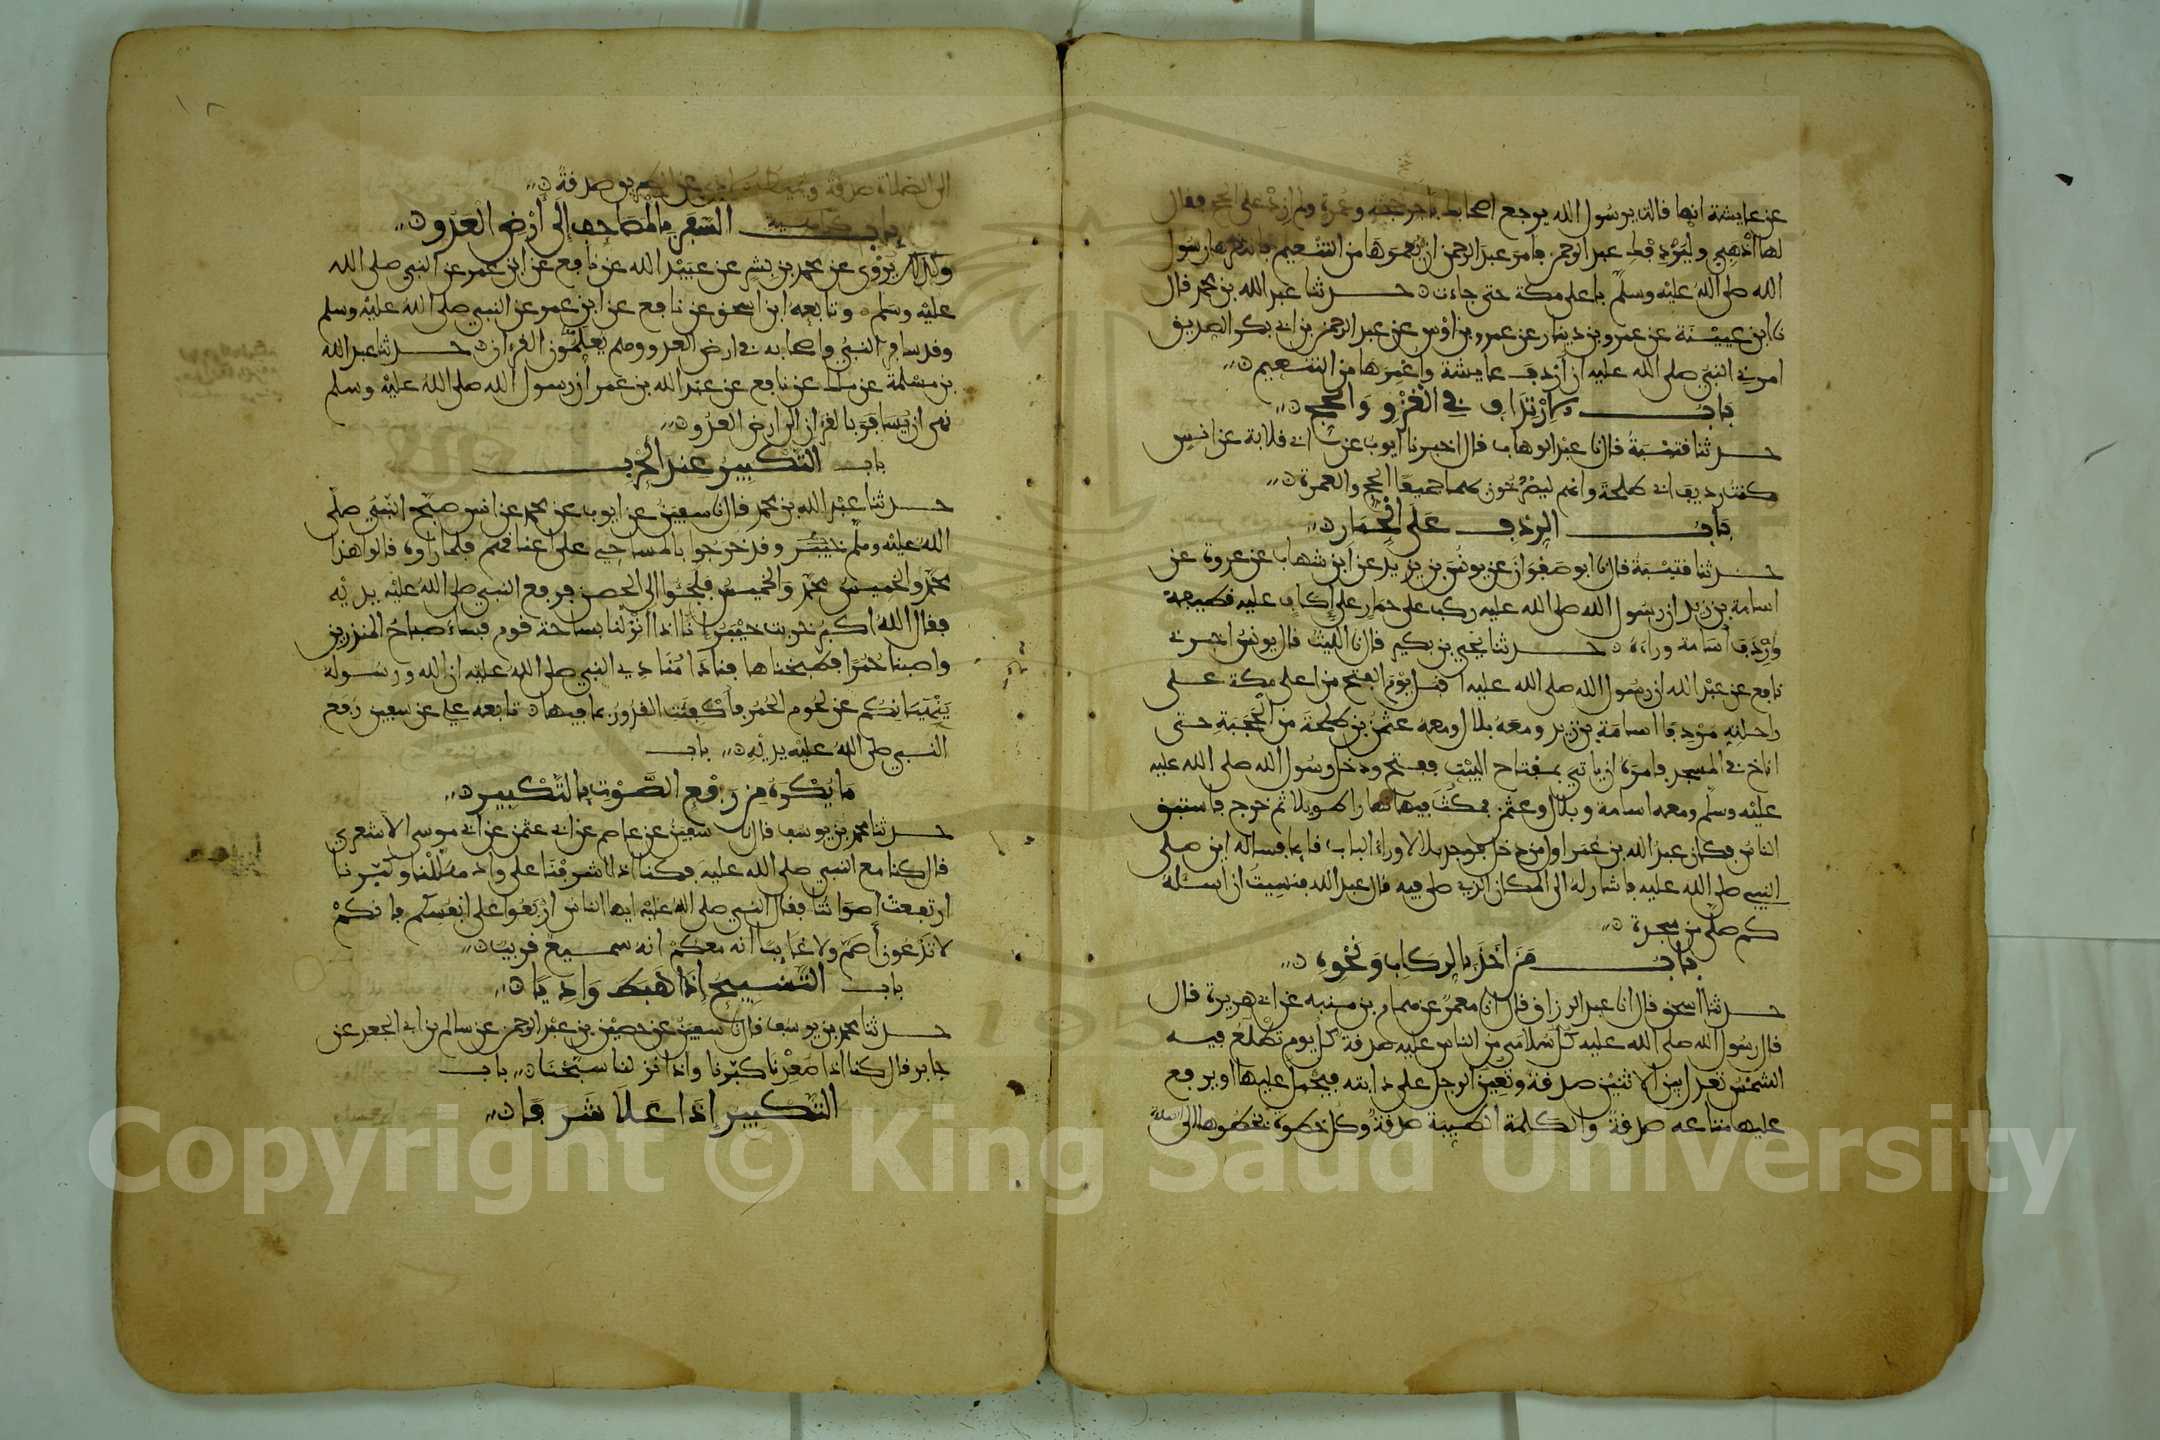 عن عايشة انها قالت يرسول الله يرجع اصحابك باجر حجة وعمرة ولم ازد على الحج فقال
لها اذهبي وليردفك عبد الرحمن فامر عبد الرحمن ان يعمرها من التنعيم فانتظرها رسول
الله صلى الله عليه وسلم باعلى مكة حتى جاءت حدثنا عبد الله بن محمد قال
نا ابن عيينة عن عمرو بن دينار عن عمرو بن اوس عن عبد الرحمن بن ابي بكر الصديق
امرني النبي صلى الله عليه ان اردف عايشة واعمرها من التنعيم
باب الارتداف في الغزو والحج
حدثنا قتيبة قال نا عبد الوهاب قال اخبرنا ايوب عن ابي قلابة عن انس
كنت رديف ابي طلحة وانهم ليصرخون بهما جميعا الحج والعمرة
باب الردف على الحمار
حدثنا قتيبة قال نا ابو صفوان عن يونس بن يزيد عن ابن شهاب عن عروة عن
اسامة بن زيد ان رسول الله صلى الله عليه ركب على حمار على إكاف عليه قطيفة
واردف اسامة وراءه حدثنا يحيى بن بكير قال نا الليث قال يونس اخبرني
نافع عن عبد الله ان رسول الله صلى الله عليه اقبل يوم الفتح من اعلى مكة على
راحلته مردفا اسامة بن زيد ومعه بلال ومعه عثمن بن طلحة من الحجبة حتى
اناخ في المسجد فامره ان ياتي بمفتاح البيت ففتح ودخل رسول الله صلى الله عليه
عليه وسلم ومعه اسامة وبلال وعثمن فمكث فيها نهارا طويلا ثم خرج فاستبق
الناس فكان عبد الله بن عمر اول من دخل فوجد بلالا وراء الباب قايما فساله اين صلى
النبي صلى الله عليه فاشار له الى المكان الذي صلى فيه قال عبد الله فنسيت ان اسئله
كم صلى من سجدة
باب من أخذ بالركاب ونحوه
حدثنا اسحق قال انا عبد الرزاق قال انا معمر عن همام بن منبه عن ابي هريرة قال
قال رسول الله صلى الله عليه كل سلامى من الناس عليه صدقة كل يوم تطلع فيه
الشمس تعدل بين الاثنين صدقة وتعين الرجل على دابته فيحمل عليها او يرفع
عليها متاعه صدقة والكلمة الطيبة صدقة وكل خطوة تخطوها الى
الى الصلاة صدقة عن الطريق صدقة
باب السفر بالمصاحف إلى أرض العدو
وكذلك يروى عن محمد بن بشر عن عبيد الله عن نافع عن ابن عمر عن النبي صلى الله
عليه وسلم وتابعه ابن اسحق عن نافع عن ابن عمر عن النبي صلى الله عليه وسلم
وقد سافر النبي واصحابه في ارض العدو وهم يعلمون القرءان حدثنا عبد الله
بن مسلمة عن ملك عن نافع عن عبد الله بن عمر ان رسول الله صلى الله عليه وسلم
نهى ان يسافر بالقرءان الى ارض العدو
باب التكبير عند الحرب
حدثنا عبد الله بن محمد قال نا سفين عن ايوب عن محمد عن انس صبح النبي صلى
الله عليه وسلم خيبر وقد خرجوا بالمساحي على اعناقهم فلما راوه قالوا هذا
محمد والخميس محمد والخميس فلجئوا الى الحصن فرفع النبي صلى الله عليه يديه
فقال الله اكبر خربت خيبر انا اذا انزلنا بساحة قوم فساء صباح المنذرين
واصبنا حمرا فطبخناها فنادا منادي النبي صلى الله عليه ان الله ورسوله
ينهيانكم عن لحوم الحمر فأكفئت القدور بما فيها تابعه علي عن سفين رفع
النبي صلى الله عليه يديه باب
ما يكره من رفع الصوت بالتكبير
حدثنا محمد بن يوسف قال نا سفين عن عاصم عن ابي عثمن عن ابي موسى الاشعري
قال كنا مع النبي صلى الله عليه فكنا اذا اشرفنا على واد هللنا وكبرنا
ارتفعت اصواتنا فقال النبي صلى الله عليه ايها الناس اربعوا على انفسكم فانكم
لا تدعون أصم ولا غايبا انه معكم انه سميع قريب
باب التسبيح إذا هبط واديا
حدثنا محمد بن يوسف قال نا سفين عن حصين بن عبد الرحمن عن سالم بن ابي الجعد عن
جابر قال كنا اذا صعدنا كبرنا واذا نزلنا سبحنا باب
التكبير إذا علا شرفا
Copyright © King Saud University